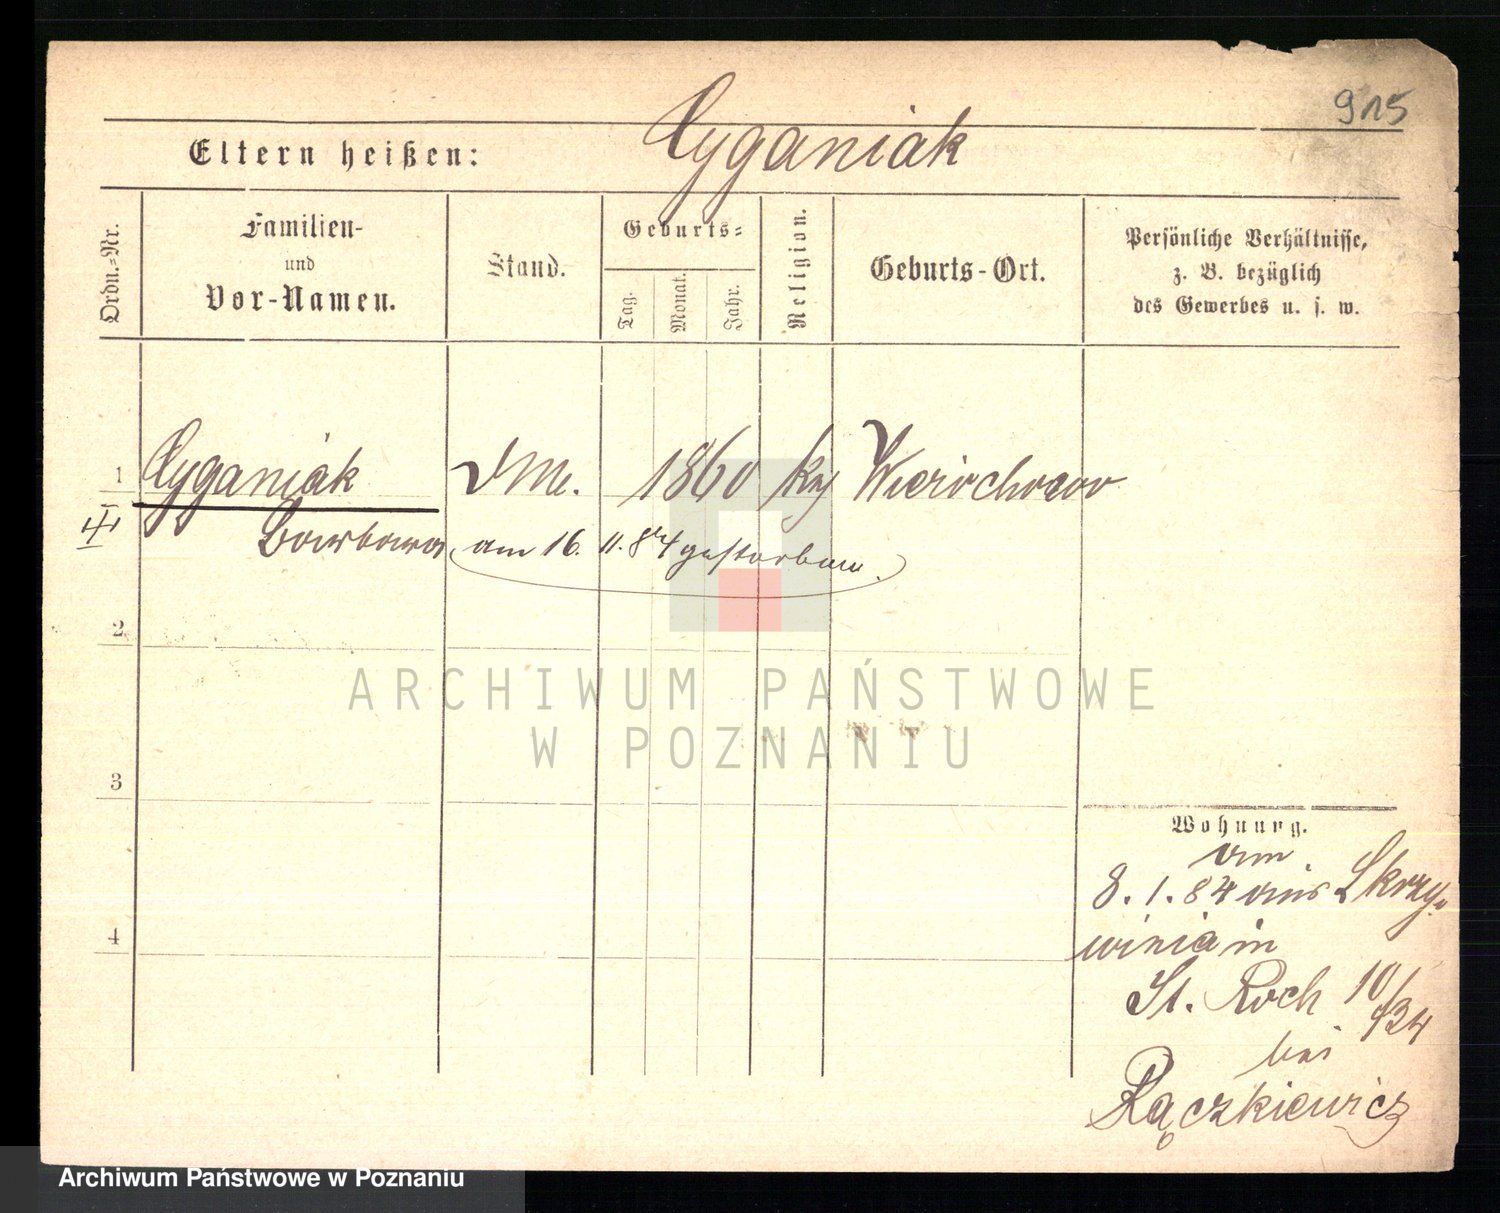 915
Cyganiak
Eltern heißen:
Ordn.-Nr.
Familien-
und
Vor-Namen.
Stand.
Geburts-
Tag.
Monat.
Jahr.
Religion.
Geburts-Ort.
Persönliche Verhältnisse,
z. B. bezüglich
des Gewerbes u. s. w.
1 Cyganiak 1860
Barbara am 16. 11. 84 gestorben.
2
3
4
Wohnung.
am
8. 1. 84 aus Skrzy-
winia in
St. Roch 10/
bei
Rączkiewicz
ARCHIWUM PAŃSTWOWE
W POZNANIU
Archiwum Państwowe w Poznaniu